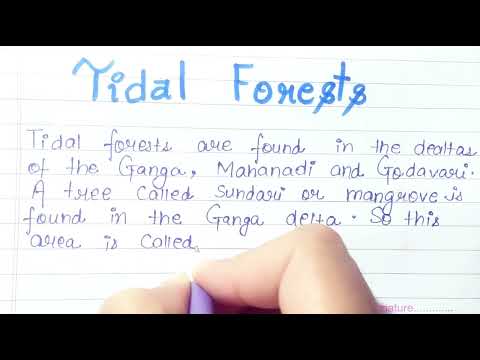 Tidal Forests
Tidal forests are found in the dealtas
of the Ganga, Mahanadi and Godavari.
A tree called Sundari or mangrove is
found in the Ganga delta. So this
area is called
nature............